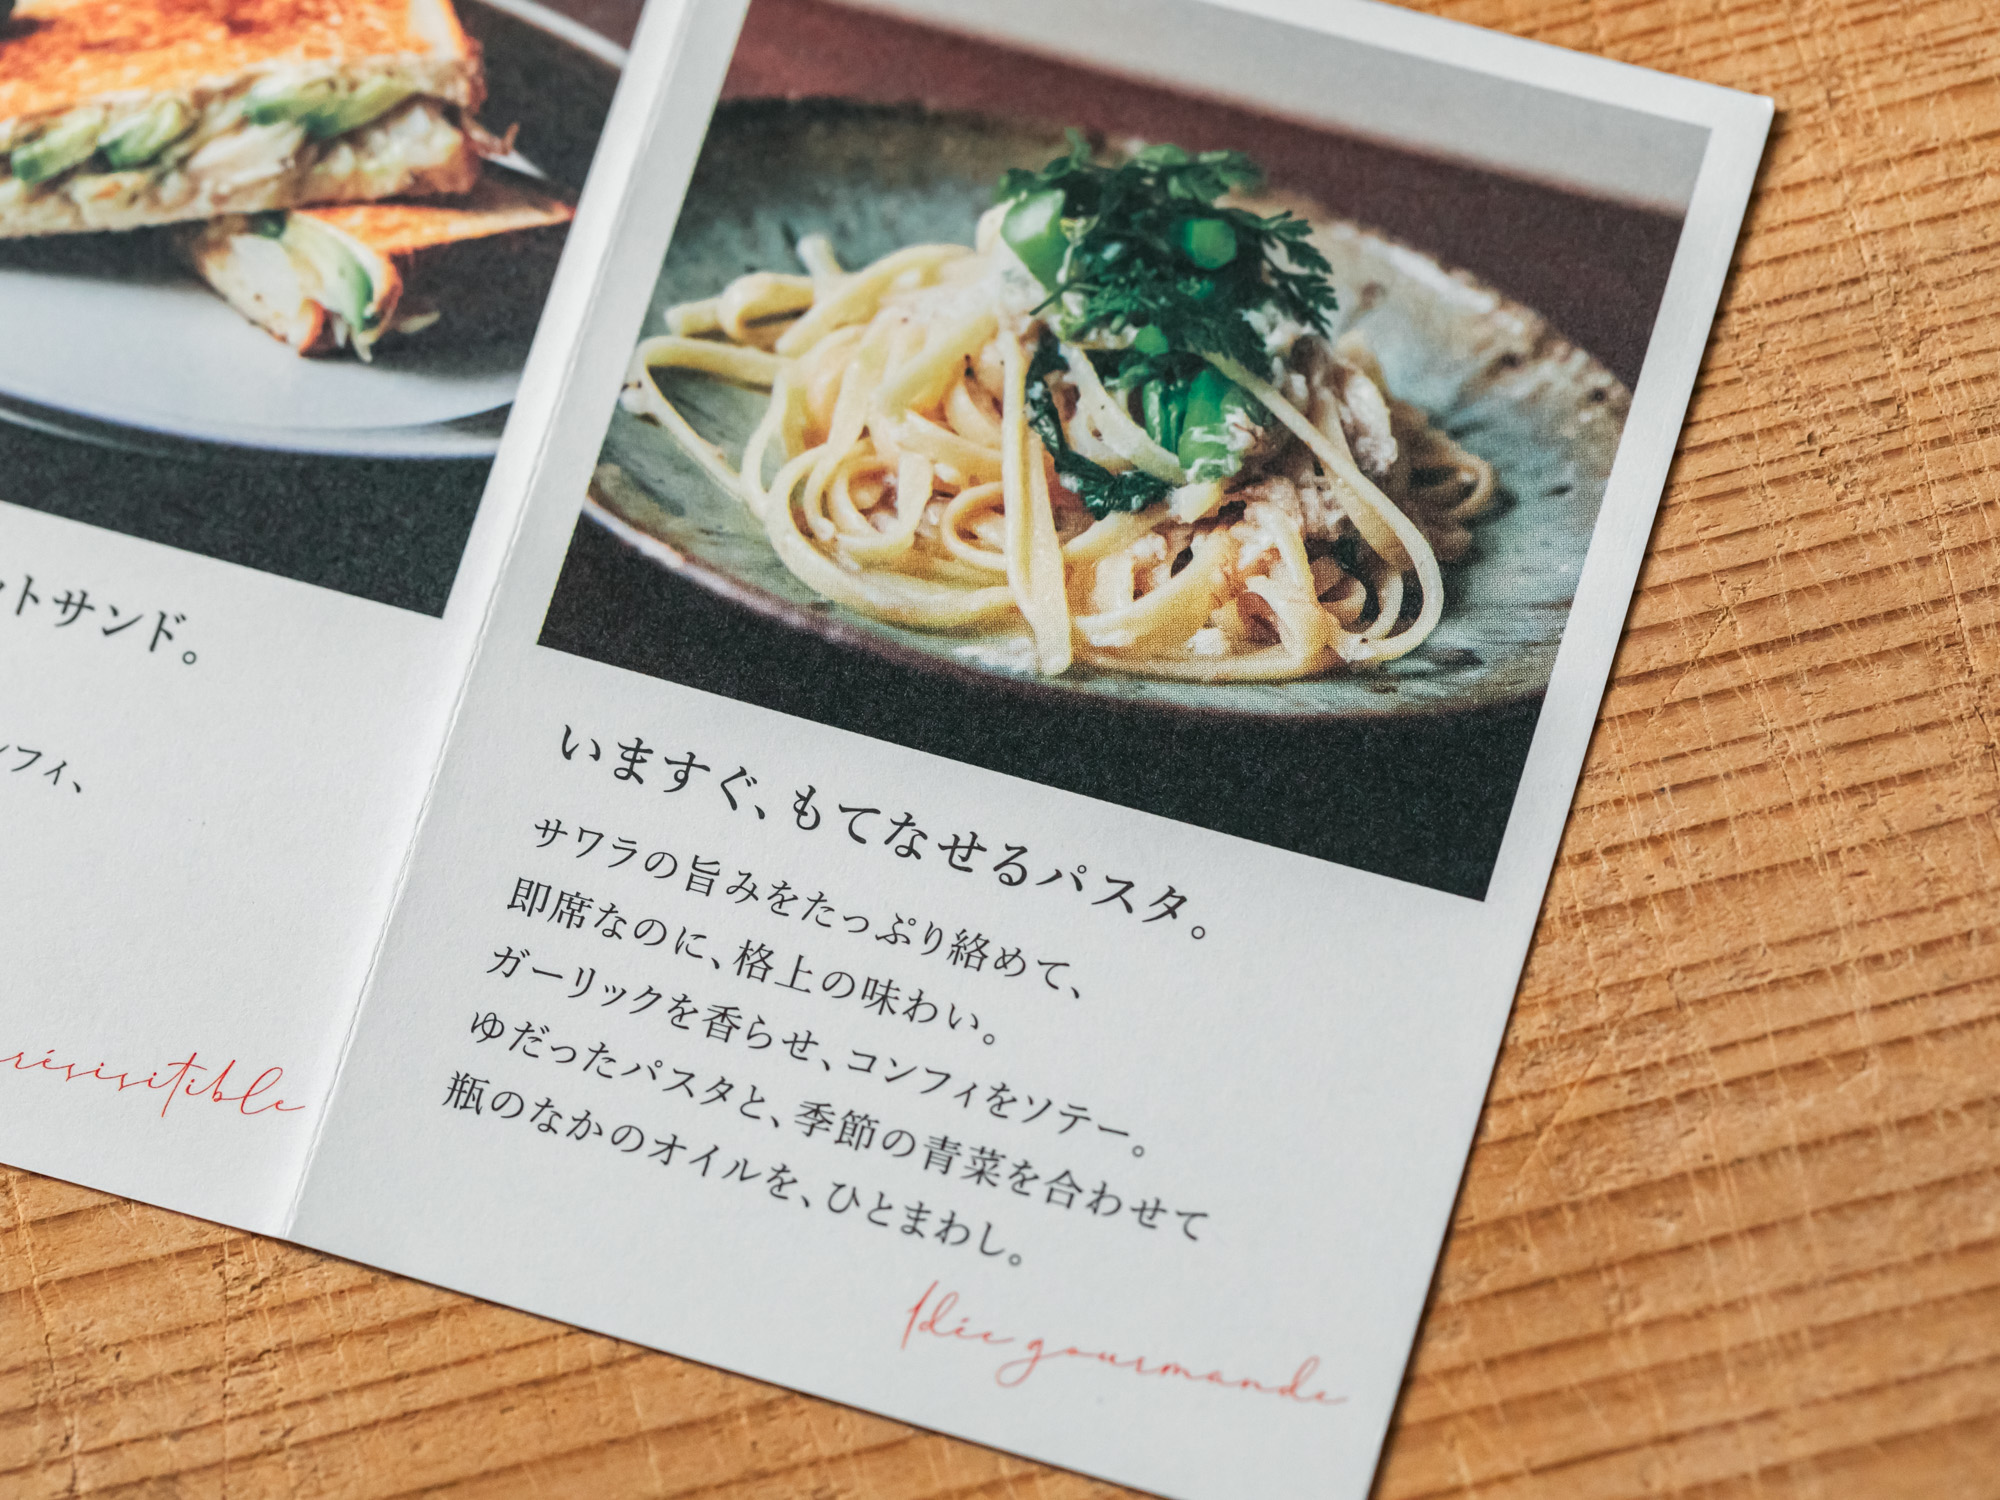 ットサンド。
ンフィ、
résisitible
いますぐ、もてなせるパスタ。
サワラの旨みをたっぷり絡めて、
即席なのに、格上の味わい。
ガーリックを香らせ、コンフィをソテー。
ゆだったパスタと、季節の青菜を合わせて
瓶のなかのオイルを、ひとまわし。
Idée gourmande